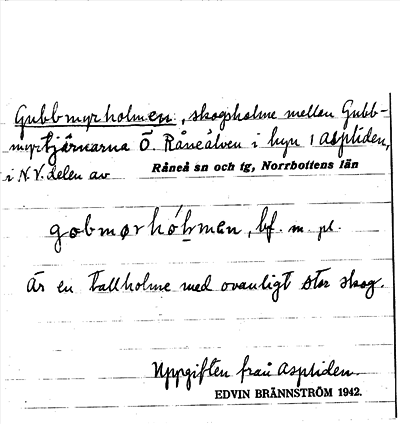 Gubbmyrholmen, skogsholme mellan Gubb-
myrtjärnarna Ö. Råneälven i byn 1 Asptiden,
i N.V. delen av Råneå sn och tg, Norrbottens län
gobmørhóḷmen, bf. m. pl.
Är en tallholme med ovanligt stor skog.
Uppgiften från Asptiden.
EDVIN BRÄNNSTRÖM 1942.